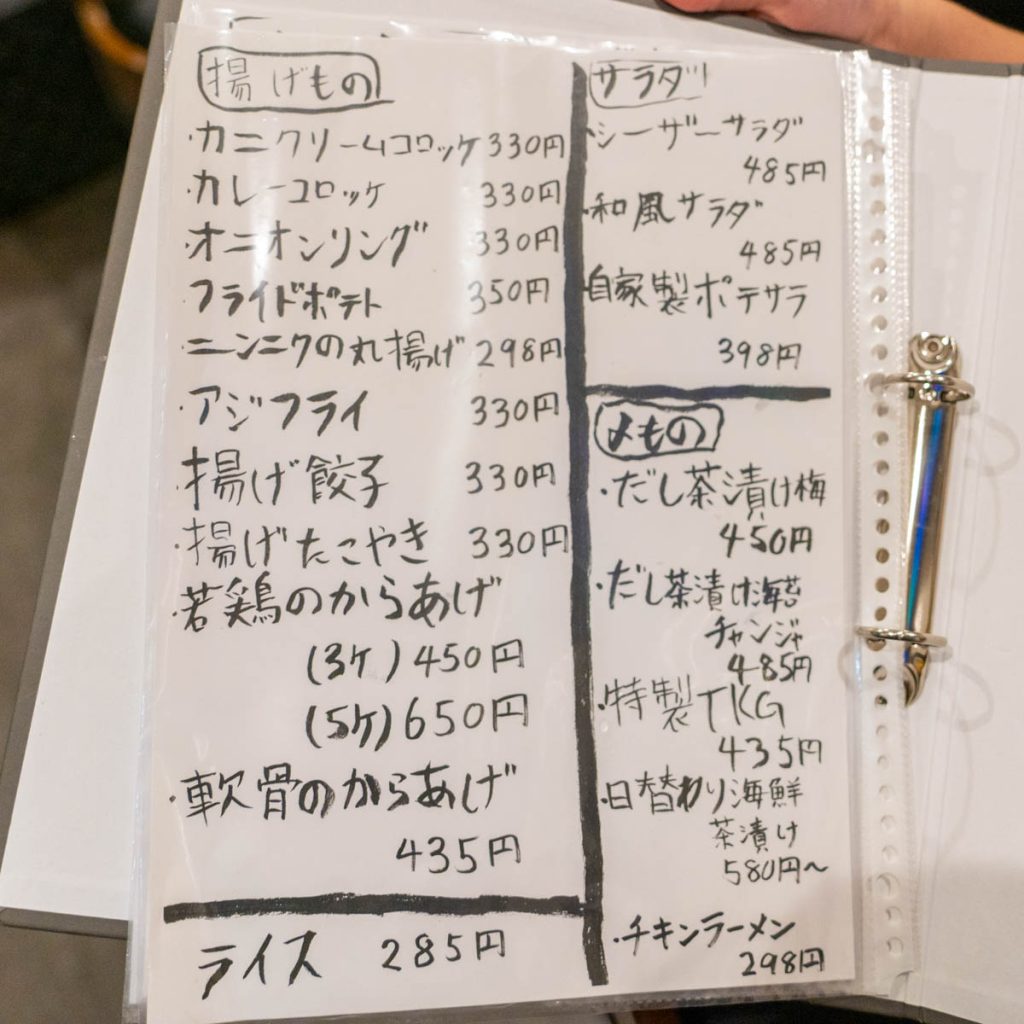 揚げもの
・カニクリームコロッケ 330円
カレーコロッケ 330円
・オニオンリング 330円
フライドポテト 350円
・ニンニクの丸揚げ 298円
・アジフライ 330円
・揚げ餃子 330円
・揚げたこやき 330円
・若鶏のからあげ
(3ケ)450円
(5ケ)650円
・軟骨のからあげ
435円
ライス 285円
サラダ
・シーザーサラダ
485円
・和風サラダ
485円
・自家製ポテサラ
398円
〆もの
・だし茶漬け梅
450円
・だし茶漬け海苔
チャンジャ
485円
・特製TKG
435円
・日替わり海鮮
茶漬け
580円~
・チキンラーメン
298円